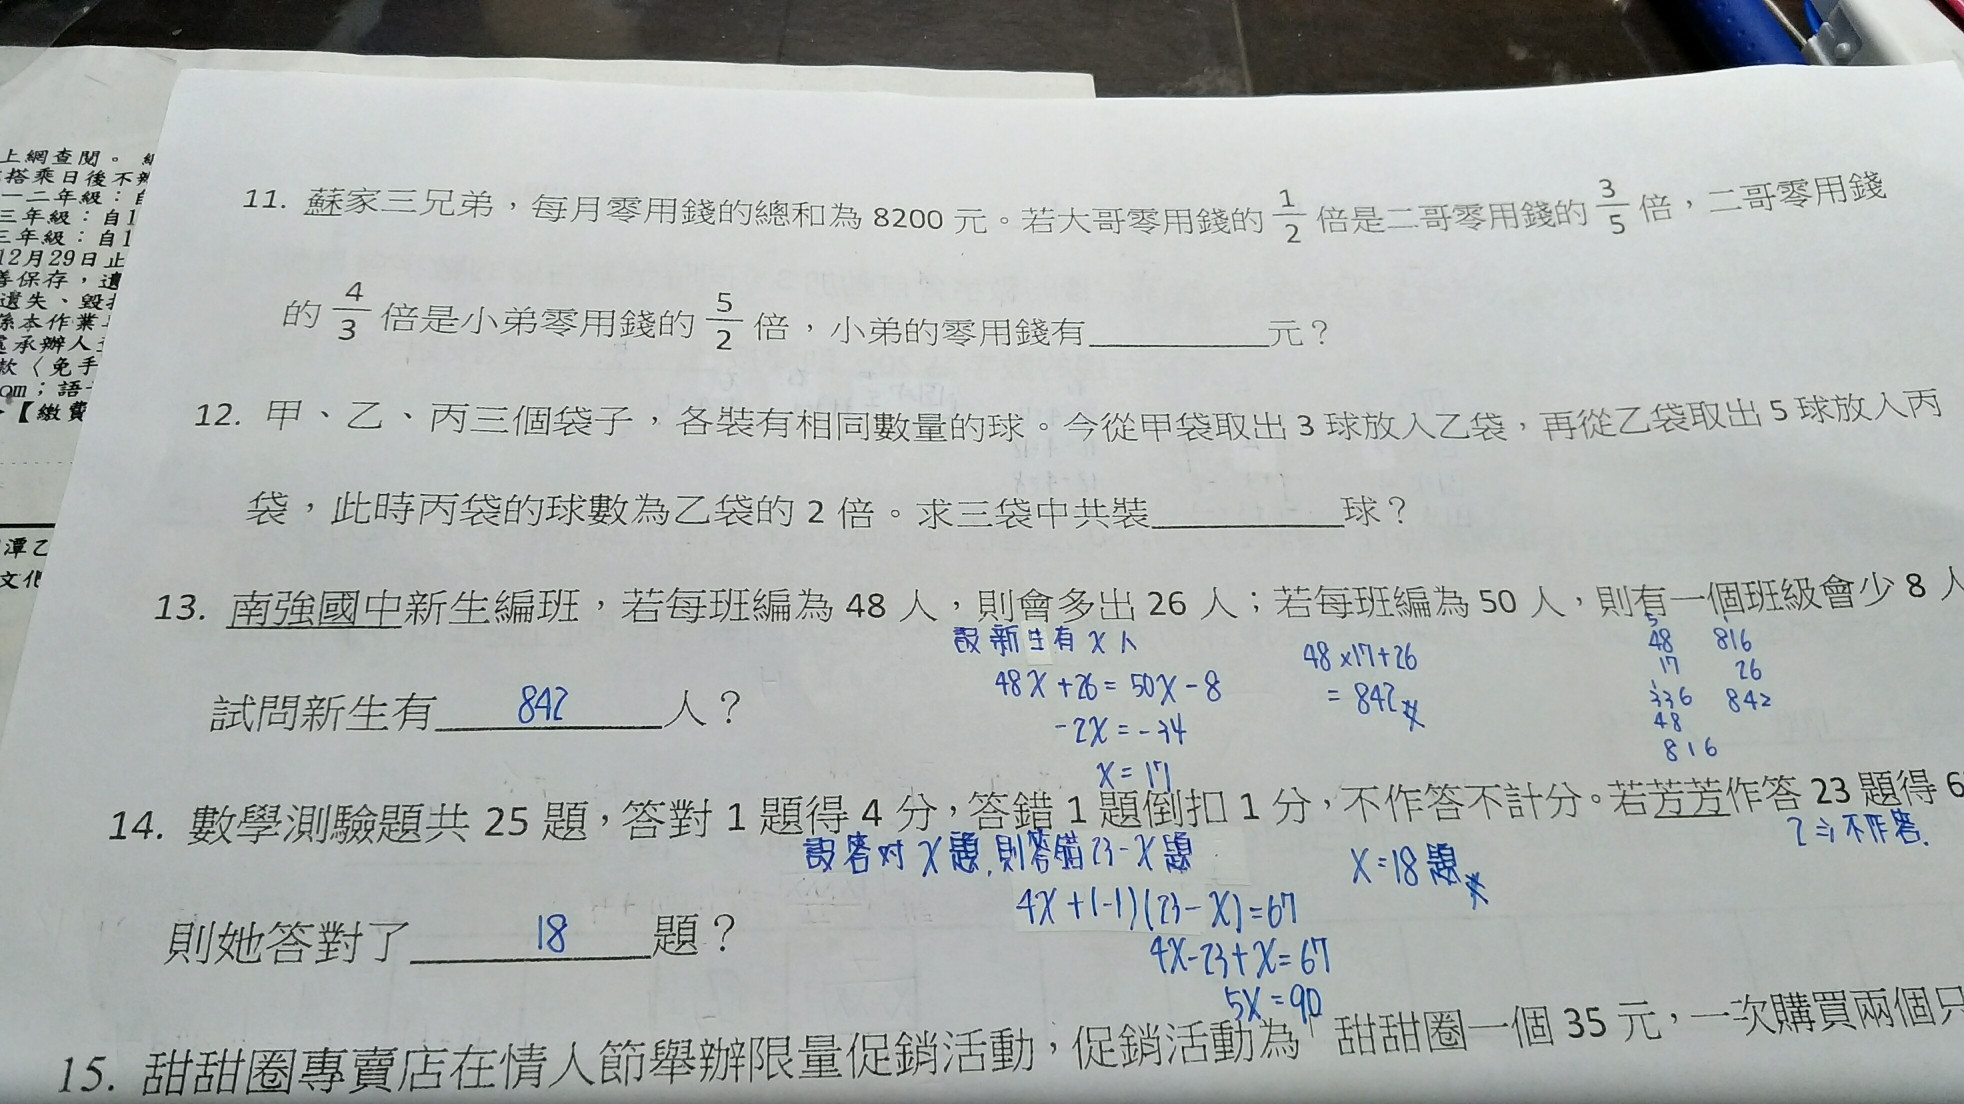 上網查閱。
搭乘日後不
一二年級：自
三年級：自1
三年級：自1
12月29日止
善保存，遺
遺失、毀
係本作業
承辦人
款〈免手
om；語
【繳費
潭乙
文化
11. 蘇家三兄弟，每月零用錢的總和為 8200 元。若大哥零用錢的 1/2 倍是二哥零用錢的 3/5 倍，二哥零用錢
的 4/3 倍是小弟零用錢的 5/2 倍，小弟的零用錢有__________元？
12. 甲、乙、丙三個袋子，各裝有相同數量的球。今從甲袋取出 3 球放入乙袋，再從乙袋取出 5 球放入丙
袋，此時丙袋的球數為乙袋的 2 倍。求三袋中共裝__________球？
13. 南強國中新生編班，若每班編為 48 人，則會多出 26 人；若每班編為 50 人，則有一個班級會少 8 人
設新生有 X 人
48X+26=50X-8
-2X=-34
X=17
48×17+26
=842
5
48
17
1
336
48
816
1
816
26
842
試問新生有 842 人？
14. 數學測驗題共 25 題，答對 1 題得 4 分，答錯 1 題倒扣 1 分，不作答不計分。若芳芳作答 23 題得 6
2⇒不作答.
設答对 X 題,則答錯 23-X 題
4X+(-1)(23-X)=67
4X-23+X=67
5X=90
X=18題
則她答對了 18 題？
15. 甜甜圈專賣店在情人節舉辦限量促銷活動，促銷活動為「甜甜圈一個 35 元，一次購買兩個只